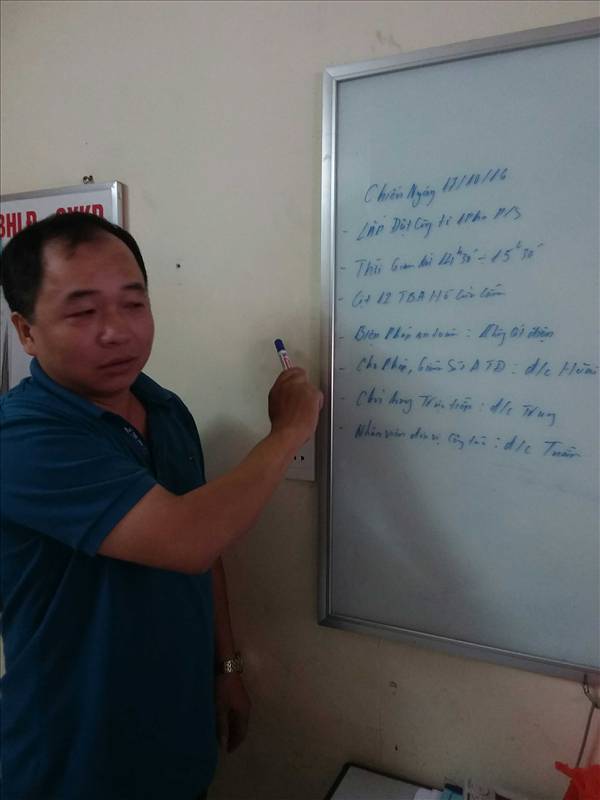 BHLĐ - SXKD
Chiều Ngày 17/10/16
- Lắp Đặt Công tơ 1Pha P/S
- Thời Gian từ 14h30' - 15h30'
- Cột 12 TBA
- Biện Pháp an toàn: Không Cắt điện
- Cho Phép, Giám Sát ATĐ: đ/c
- Chỉ huy Trực tiếp: đ/c Trung
- Nhân viên đơn vị Công tác: đ/c Tuấn